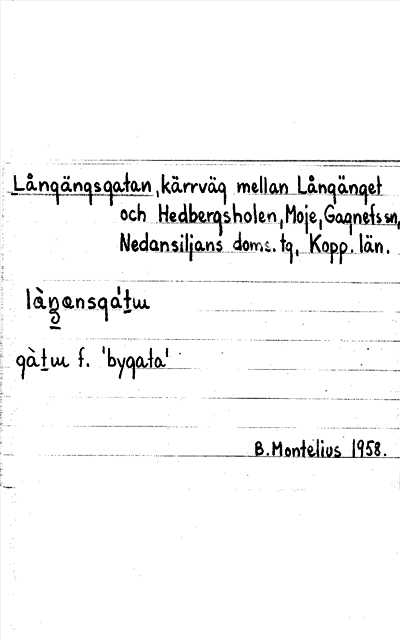 Långängsgatan, kärrväg mellan Långänget
och Hedbergsholen, Moje, Gagnefs sn,
Nedansiljans doms. tg, Kopp. län.
gàtɯ f. 'bygata'
B. Montelius 1958.